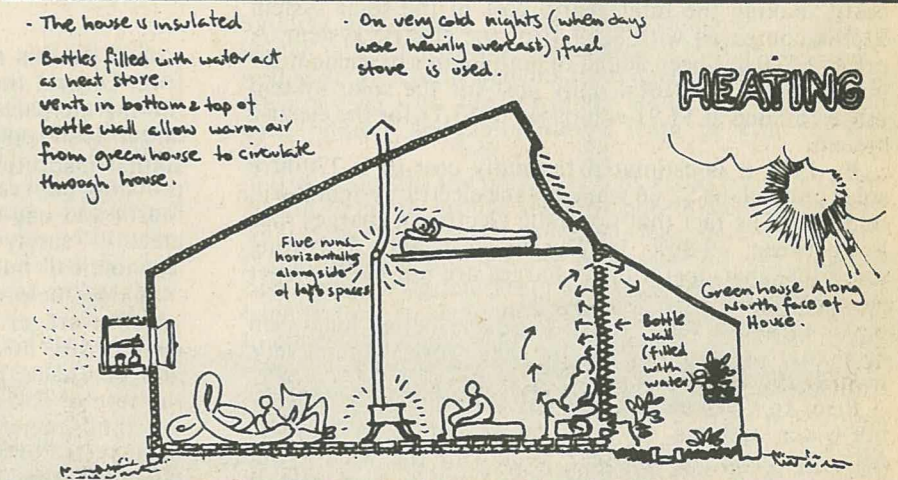 - The house is insulated
- Bottles filled with water act
as heat store.
vents in bottom & top of
bottle wall allow warm air
from greenhouse to circulate
through house.
- On very cold nights (when days
were heavily overcast), fuel
stove is used.
HEATING
Flue runs
horizontally
alongside
of loft spaces
Greenhouse Along
North face of
House.
Bottle
wall
(filled
with
water)